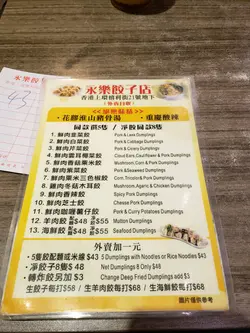 永樂餃子店
香港上環禧利街21號地下
花膠淮山豬骨湯 · 重慶酸辣
1. 鮮肉韮菜餃 Pork & Leek Dumplings
2. 鮮肉白菜餃 Pork & Cabbage Dumplings
3. 鮮肉芹菜餃 Pork & Celery Dumplings
4. 鮮肉雲耳椰菜餃
5. 鮮肉香菇粟米餃
6. 鮮肉紫菜餃 Pork & Seaweed Dumplings
7. 鮮肉粟米三色椒餃
8. 雞肉冬菇木耳餃 Mushroom, Agaric & Chicken Dumplings
9. 鮮肉香辣餃 Spicy Pork Dumplings
10. 鮮肉芝士餃 Cheese Pork Dumplings
11. 鮮肉咖喱薯仔餃 Pork & Curry Potatoes Dumplings
12. 羊肉餃 $48 $55 Mutton Dumplings
13. 海鮮餃 $48 $55 Seafood Dumplings
外賣加一元
5隻餃配麵或米線 $43 5 Dumplings with Noodles or Rice Noodles $43
淨餃子8隻 $48 Net Dumplings 8 Only $48
轉炸餃另加 $3 Change Deep Fried Dumplings add $3
生餃子每打$68 / 生羊肉餃每打$68 / 生海鮮餃每打$68
圖片僅供參考
永樂餃